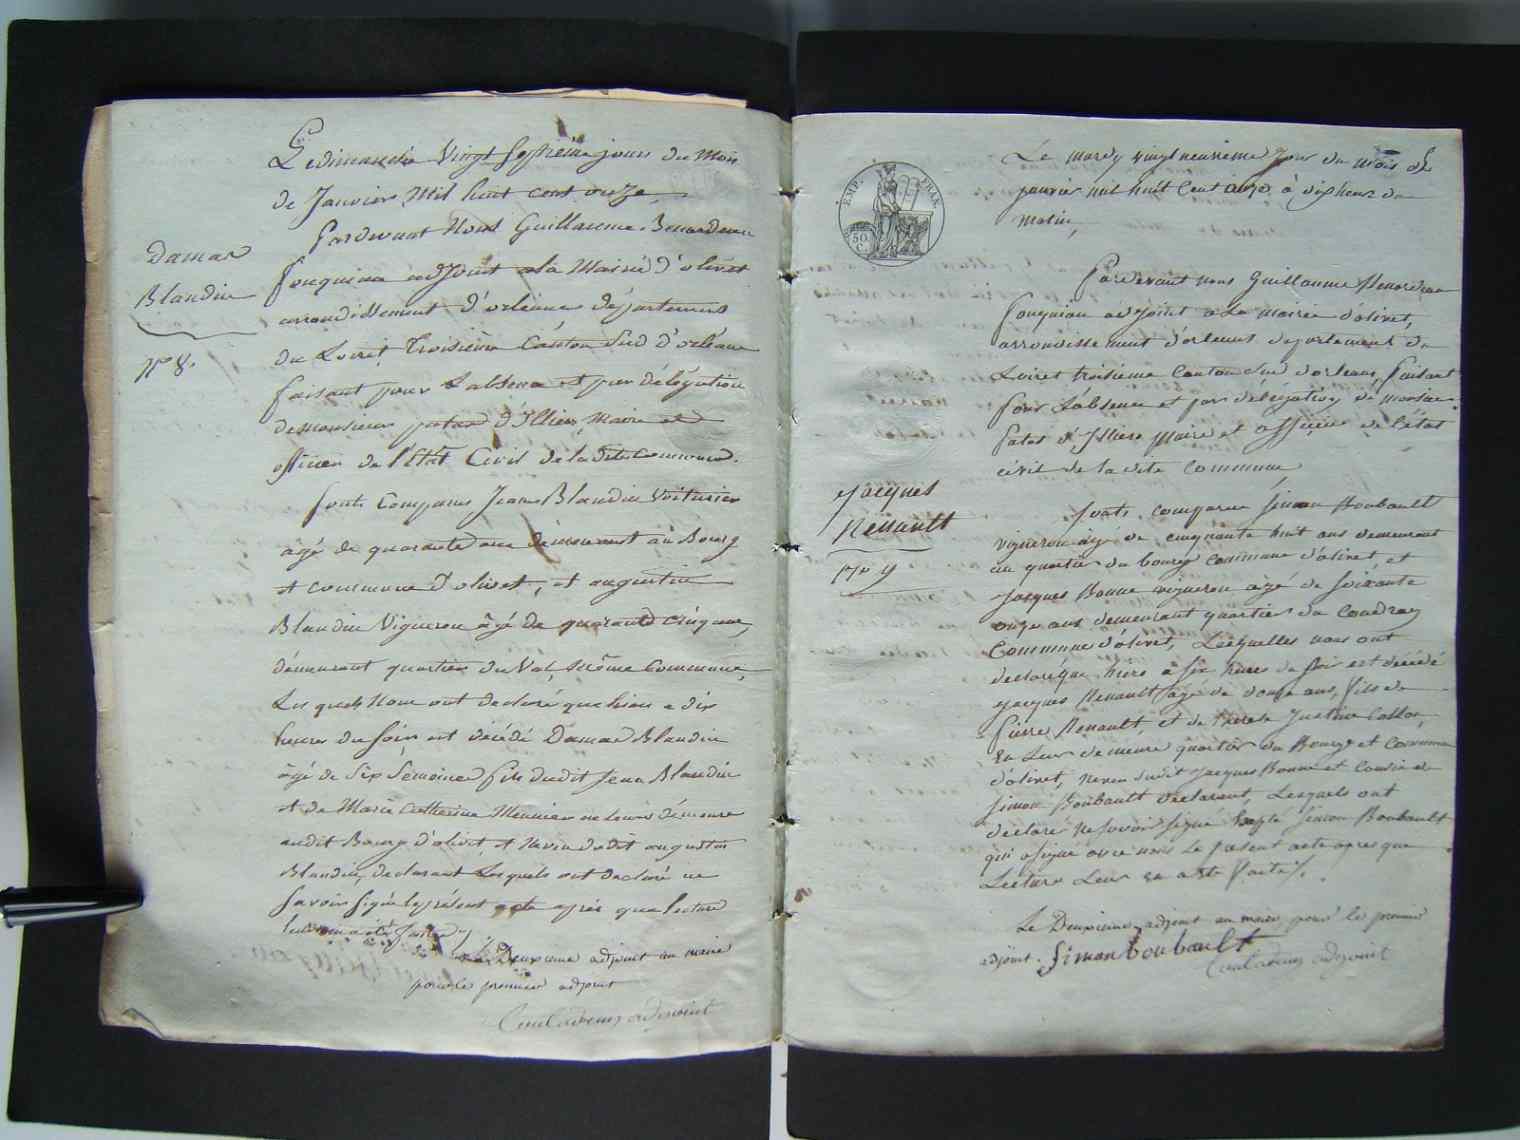 Damas
Blandin
N° 8.
Le dimanche Vingt Septieme jour du Mois
de Janvier Mil huit cent onze
Pardevant Nous Guillaume Renardeau
Fouqueau adjoint a la Mairie d'olivet
arrondissement d'orleans département
du Loiret troisième Canton Sud d'orleans
faisant pour L'absence et par délégation
de monsieur patas d'Illiers, Maire et
officier de l'Etat Civil de la dite Commune.
sont Comparus Jean Blandin Voiturier
âgé de quarante ans demeurant au Bourg
et commune d'olivet, et augustin
Blandin Vigneron âgé de quarante cinq ans,
demeurant quartier du Val, même Commune,
Les quels Nous ont declaré que hier a dix
heures du soir est décédé Damas Blandin
âgé de Six Semaine fils dudit Jean Blandin
et de Marie Catherine Meunier en leur démeure
audit Bourg d'olivet et Neveu dudit augustin
Blandin, declarant Lesquels ont declaré ne
savoir signé le présent acte après que lecture
leur en a été faite
Le Deuxieme adjoint au maire
pour le premier adjoint
adjoint
EMP. FRAN.
50 C.
Jacques
Renault
N° 9
Le mardy vingt neuvieme jour du mois de
janvier mil huit Cent onze, à dix heures du
matin,
Pardevant nous Guillaume Renardeau
Fouqueau adjoint a La mairie d'olivet,
arrondissement d'orleans departement du
Loiret troisieme Canton Sud d'orleans, faisant
pour L'absence et par délégation de monsieur
Patas d'Illiers Maire et officier de l'état
civil de la dite commune
sont comparu Simon Boubault
vigneron agé de cinquante huit ans demeurant
au quartier du bourg commune d'olivet, et
Jacques Bonne vigneron agé de soixante
onze ans demeurant quartier du Coudray
Commune d'olivet, Lesquelles nous ont
declaré que hiere à six heures du soir est décédé
Jacques Renault agé de douze ans, fils de
Pierre Renault, et de Justine
en Leur demeure quartier du Bourg et Commune
d'olivet, neveu dudit Jacques Bonne et Cousin de
Simon Boubault declarant, Lesquels ont
declaré ne savoir signe Simon Boubault
qui a signe avec nous Le present acte apres que
Lecture Leur en a été faite.
Le Deuxieme adjoint au maire pour le premier
adjoint. Simon boubault
adjoint